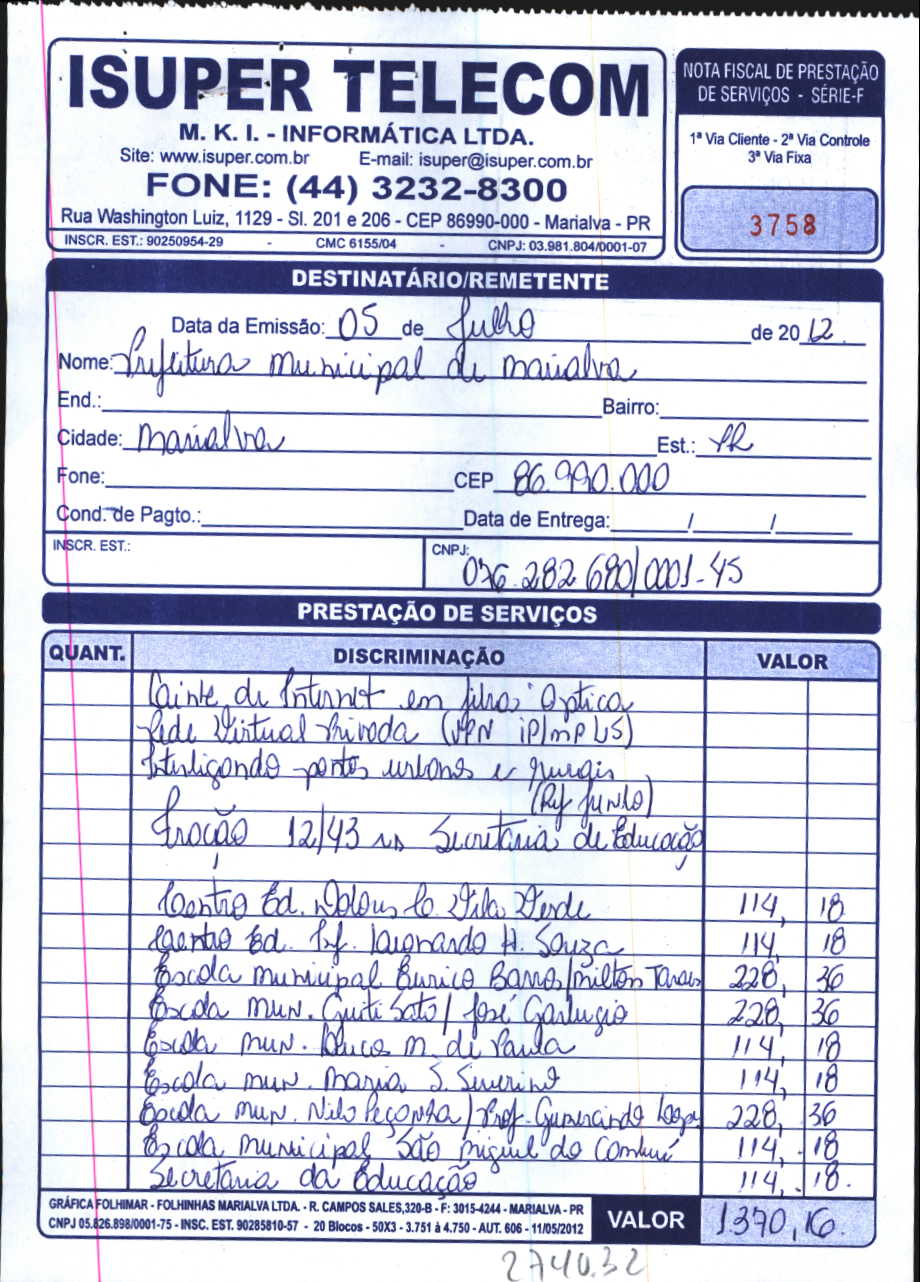 ISUPER TELECOM
M. K. I. - INFORMÁTICA LTDA.
Site: www.isuper.com.br E-mail: isuper@isuper.com.br
FONE: (44) 3232-8300
Rua Washington Luiz, 1129 - Sl. 201 e 206 - CEP 86990-000 - Marialva - PR
INSCR. EST.: 90250954-29 - CMC 6155/04 - CNPJ: 03.981.804/0001-07
NOTA FISCAL DE PRESTAÇÃO
DE SERVIÇOS - SÉRIE-F
1ª Via Cliente - 2ª Via Controle
3ª Via Fixa
3758
DESTINATÁRIO/REMETENTE
Data da Emissão: 05 de Julho de 2012
Nome: Prefeitura Municipal de Marialva
End.: Bairro:
Cidade: Marialva Est.: PR
Fone: CEP 86.990.000
Cond. de Pagto.: Data de Entrega: / /
INSCR. EST.: CNPJ: 076.282.680/0001-45
PRESTAÇÃO DE SERVIÇOS
QUANT. DISCRIMINAÇÃO VALOR
de Internet em fibra Optica
Rede Virtual Privada (VPN iP/MPLS)
Interligando pontos urbanos e rurais
(Ref Junto)
Fração 12/43 Secretaria de Educação
Centro Ed. Vila Verde 114, 18
Centro Ed. Prf. Leonardo H. Souza 114, 18
Escola municipal Eurico Barros/Milton Tavares 228, 36
Escola mun. Guiti Sato / José Garbugio 228, 36
Escola mun. M. de Paula 114, 18
Escola mun. Maria S. Severino 114, 18
Escola mun. Nilo Peçanha / Prof. Gumercindo Lopes 228, 36
Escola municipal São Miguel do Cambuí 114, 18
Secretaria da Educação 114, 18
GRÁFICA FOLHIMAR - FOLHINHAS MARIALVA LTDA. - R. CAMPOS SALES,320-B - F: 3015-4244 - MARIALVA - PR
CNPJ 05.826.898/0001-75 - INSC. EST. 90285810-57 - 20 Blocos - 50X3 - 3.751 à 4.750 - AUT. 606 - 11/05/2012
VALOR 1370,16.
2740.32